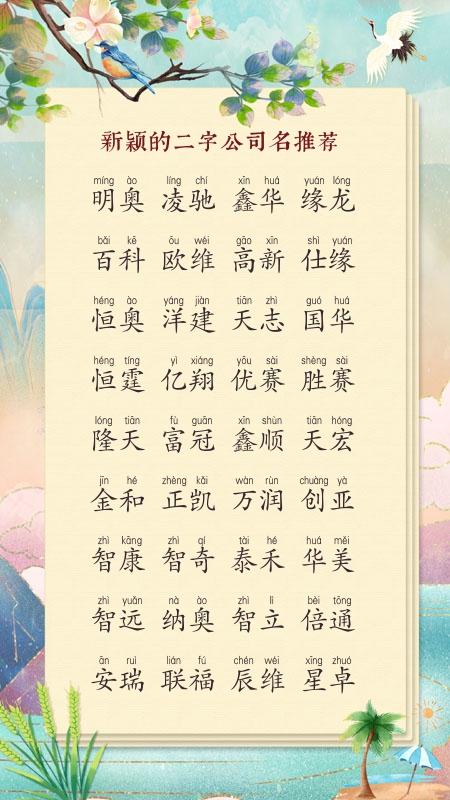 新颖的二字公司名推荐
míng ào líng chí xīn huá yuán lóng
明奥 凌驰 鑫华 缘龙
bǎi kē ōu wéi gāo xīn shì yuán
百科 欧维 高新 仕缘
héng ào yáng jiàn tiān zhì guó huá
恒奥 洋建 天志 国华
héng tíng yì xiáng yōu sài shèng sài
恒霆 亿翔 优赛 胜赛
lóng tiān fù guān xīn shùn tiān hóng
隆天 富冠 鑫顺 天宏
jīn hé zhèng kǎi wàn rùn chuàng yà
金和 正凯 万润 创亚
zhì kāng zhì qí tài hé huá měi
智康 智奇 泰禾 华美
zhì yuǎn nà ào zhì lì bèi tōng
智远 纳奥 智立 倍通
ān ruì lián fú chén wéi xīng zhuó
安瑞 联福 辰维 星卓